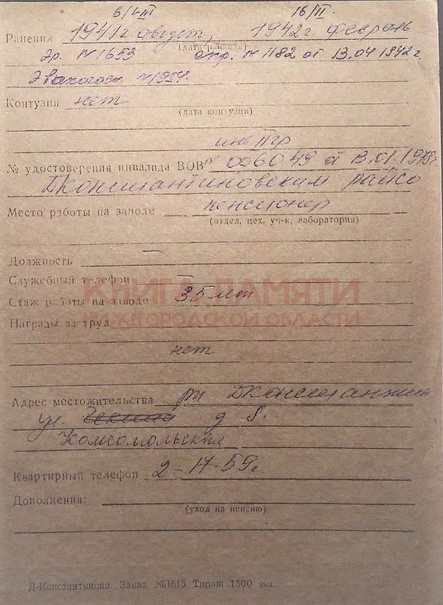 6/VIII 16/II
Ранения 1941г август, 1942г февраль
(дата ранения)
эг. №1653 спр. №1182 от 13.04 1942г
Эвакогосп №1954.
Контузия нет
(дата контузии)
инв IIгр
№ удостоверения инвалида ВОВ № 006049 от 13.01.1978г.
Дконстантиновским райсо
Место работы на заводе пенсионер
(отдел, цех, уч-к, лаборатория)
Должность
Служебный телефон
Стаж работы на заводе 35 лет
Награды за труд
КНИГА ПАМЯТИ
НИЖЕГОРОДСКОЙ ОБЛАСТИ
нет
Адрес местожительства рп Дконстантин
ул. д 8.
Комсомольская
Квартирный телефон 2-17-59.
Дополнения:
(уход на пенсию)
Д-Константиново Заказ №1615 Тираж 1500 экз